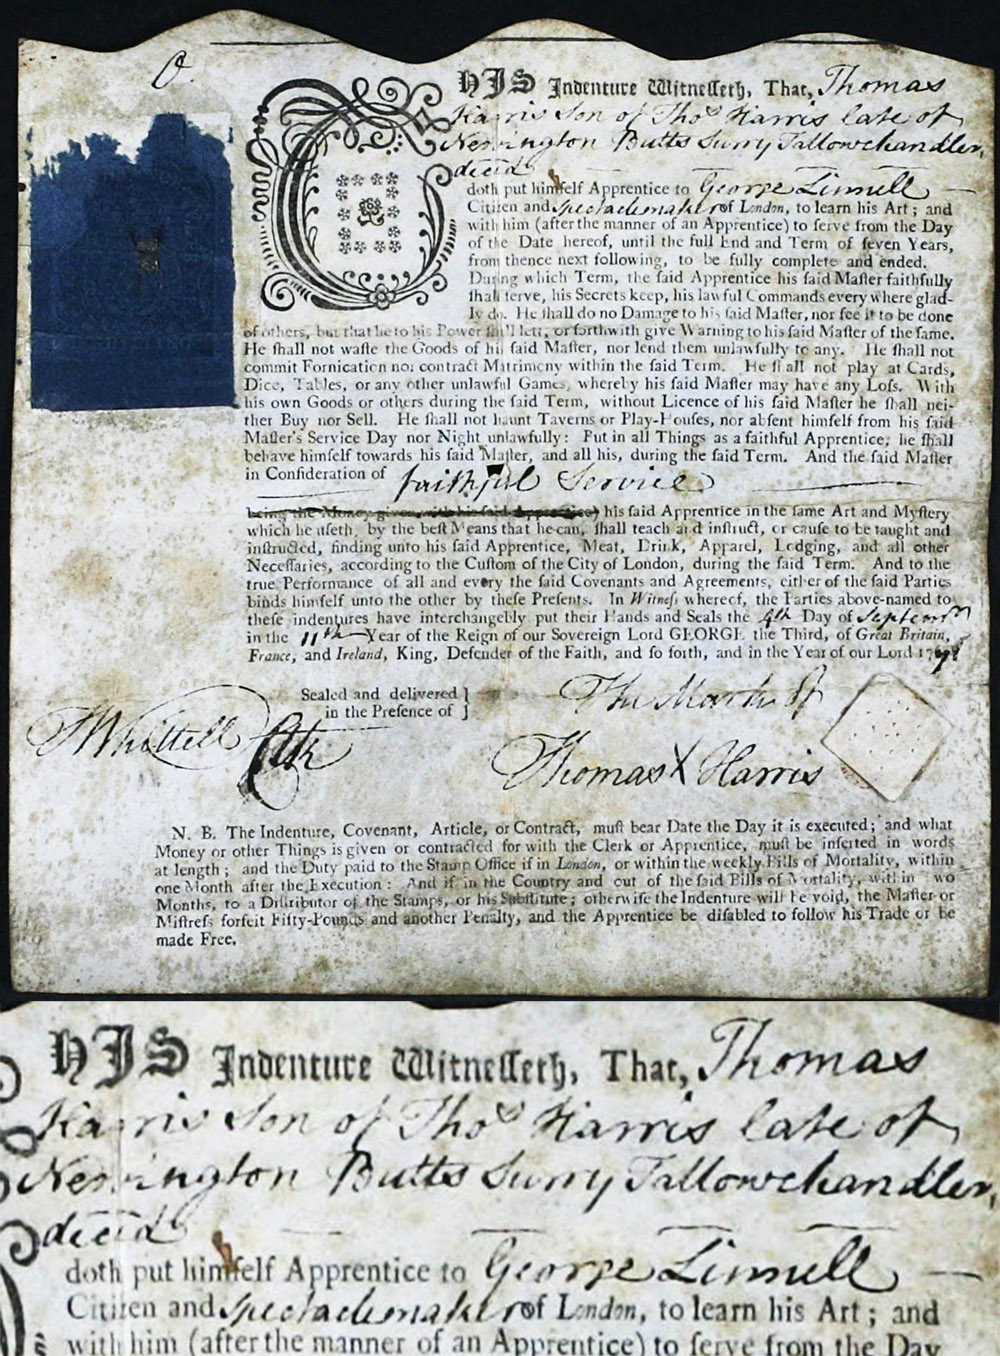 THIS Indenture Witnesseth, That, Thomas
Harris Son of Thos Harris late of
Newington Butts Surry Tallowchandler,
dece'd
doth put himself Apprentice to George Linnell
Citizen and Spectaclemaker of London, to learn his Art; and
with him (after the manner of an Apprentice) to serve from the Day
of the Date hereof, until the full End and Term of seven Years,
from thence next following, to be fully complete and ended.
During which Term, the said Apprentice his said Master faithfully
shall serve, his Secrets keep, his lawful Commands every where glad-
ly do. He shall do no Damage to his said Master, nor see it to be done
of others, but that he to his Power shall lett, or forthwith give Warning to his said Master of the same.
He shall not waste the Goods of his said Master, nor lend them unlawfully to any. He shall not
commit Fornication nor contract Matrimony within the said Term. He shall not play at Cards,
Dice, Tables, or any other unlawful Games, whereby his said Master may have any Loss. With
his own Goods or others during the said Term, without Licence of his said Master he shall nei-
ther Buy nor Sell. He shall not haunt Taverns or Play-Houses, nor absent himself from his said
Master's Service Day nor Night unlawfully: Put in all Things as a faithful Apprentice, he shall
behave himself towards his said Master, and all his, during the said Term. And the said Master
in Consideration of faithful Service
being the Money given with his said Apprentice) his said Apprentice in the same Art and Mystery
which he useth, by the best Means that he can, shall teach and instruct, or cause to be taught and
instructed, finding unto his said Apprentice, Meat, Drink, Apparel, Lodging, and all other
Necessaries, according to the Custom of the City of London, during the said Term. And to the
true Performance of all and every the said Covenants and Agreements, either of the said Parties
binds himself unto the other by these Presents. In Witness whereof, the Parties above-named to
these indentures have interchangebly put their Hands and Seals the 4th Day of Septem
in the 11th Year of the Reign of our Sovereign Lord GEORGE the Third, of Great Britain,
France, and Ireland, King, Defender of the Faith, and so forth, and in the Year of our Lord 177
Sealed and delivered }
in the Presence of }
The Mark of
J Whittell
Thomas X Harris
N. B. The Indenture, Covenant, Article, or Contract, must bear Date the Day it is executed; and what
Money or other Things is given or contracted for with the Clerk or Apprentice, must be inserted in words
at length; and the Duty paid to the Stamp Office if in London, or within the weekly Bills of Mortality, within
one Month after the Execution: And if in the Country and out of the said Bills of Mortality, within Two
Months, to a Distributor of the Stamps, or his Substitute; otherwise the Indenture will be void, the Master or
Mistress forfeit Fifty-Pounds and another Penalty, and the Apprentice be disabled to follow his Trade or be
made Free.
HIS Indenture Witnesseth, That, Thomas
Harris Son of Thos Harris late of
Newington Butts Surry Tallowchandler,
dece'd
doth put himself Apprentice to George Linnell
Citizen and Spectaclemaker of London, to learn his Art; and
with him (after the manner of an Apprentice) to serve from the Day